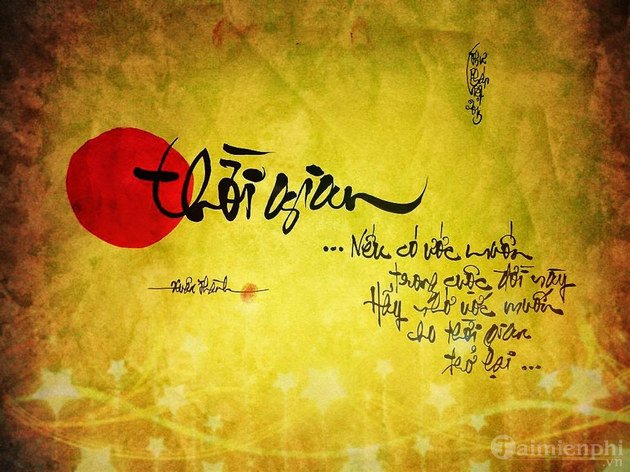 thời gian
... Nếu có ước muốn
trong cuộc đời này
Hãy nhớ ước muốn
cho thời gian
trở lại ...
Taimienphi
.vn